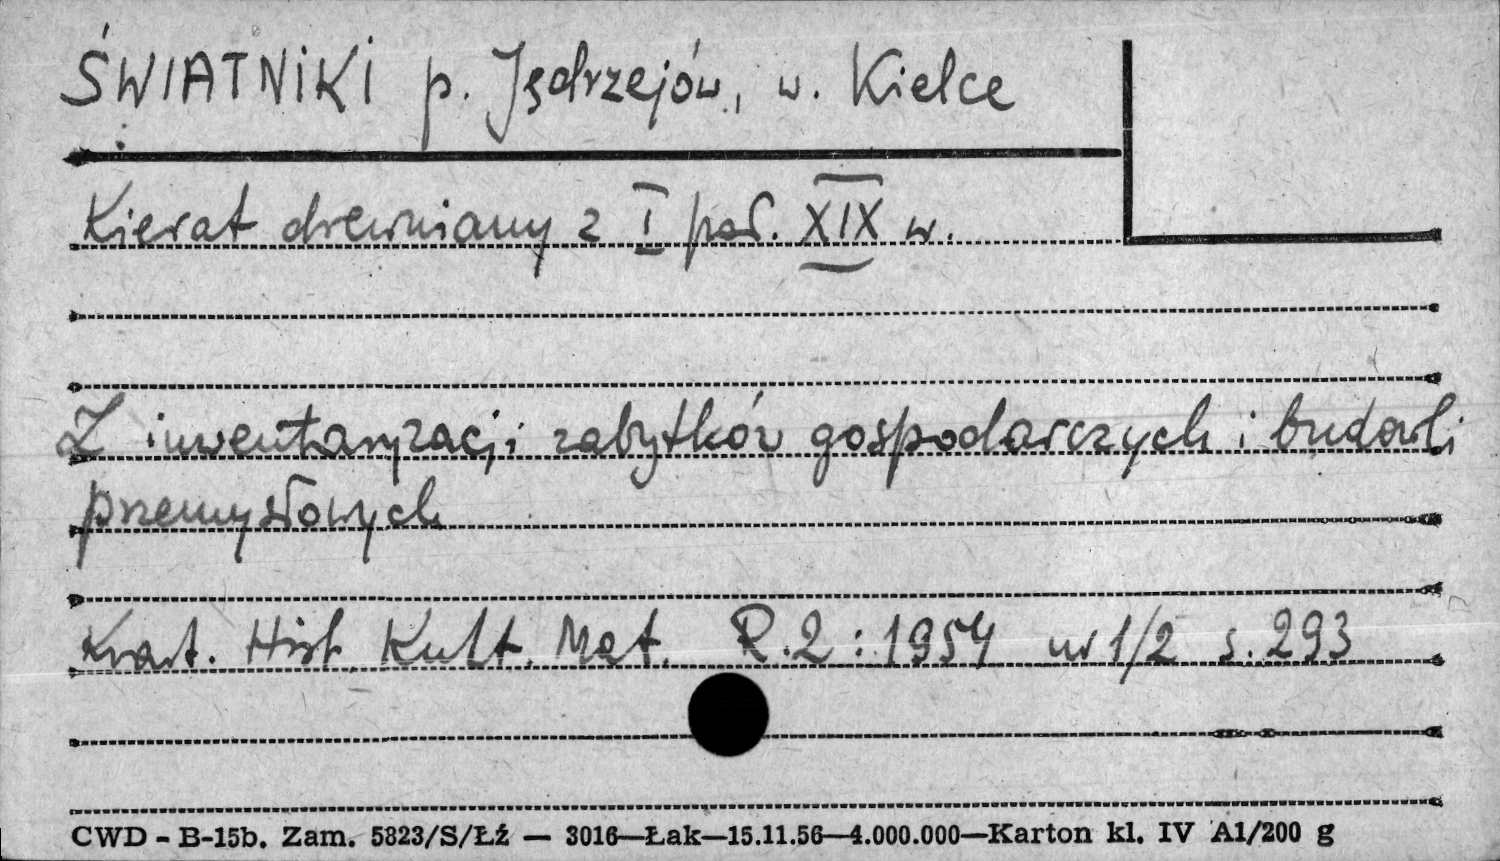 ŚWIATNIKI p. Jędrzejów, w. Kielce
Kierat drewniany z I poł. XIX w.
Z inwentaryzacji zabytków gospodarczych i budowli
przemysłowych
Kwart. Hist. Kult. Mat. R.2:1954 nr 1/2 s. 293
CWD - B-15b. Zam. 5823/S/Łź — 3016—Łak—15.11.56—4.000.000—Karton kl. IV A1/200 g